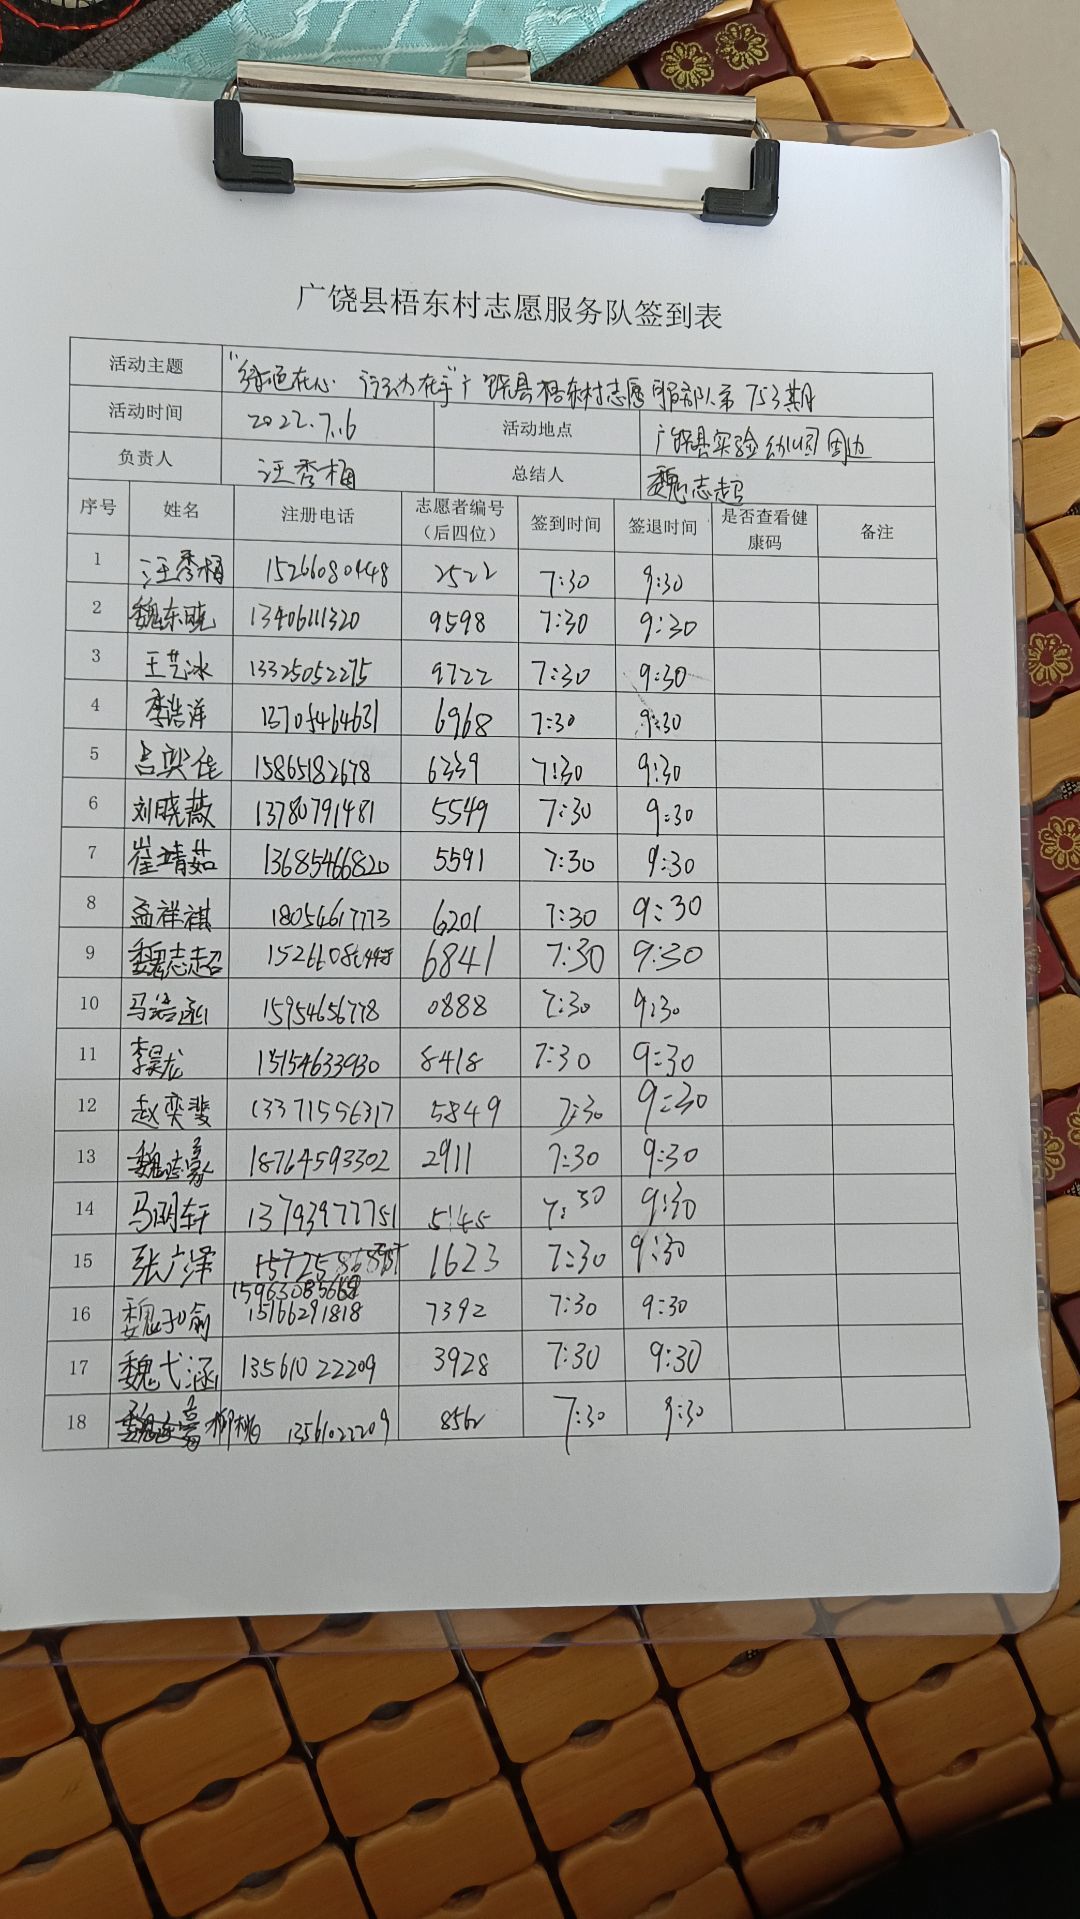 广饶县梧东村志愿服务队签到表
活动主题 "绿色在心 行动在手"广饶县梧东村志愿服务队第753期
活动时间 2022.7.6 活动地点 广饶县实验幼儿园周边
负责人 汪秀梅 总结人 魏志超
序号 姓名 注册电话 志愿者编号（后四位） 签到时间 签退时间 是否查看健康码 备注
1 汪秀梅 15266080448 2522 7:30 9:30
2 魏东晓 13406111320 9598 7:30 9:30
3 王艺冰 13325052275 9722 7:30 9:30
4 李浩洋 13705464631 6968 7:30 9:30
5 吕奕佳 15865182678 6339 7:30 9:30
6 刘晓薇 13780791481 5549 7:30 9:30
7 崔靖茹 13685466820 5591 7:30 9:30
8 孟祥祺 18054617773 6201 7:30 9:30
9 魏志超 6841 7:30 9:30
10 马浩函 15954656778 0888 7:30 9:30
11 李昊龙 15154633930 8418 7:30 9:30
12 赵奕斐 13371556317 5849 7:30 9:30
13 魏志豪 18764593302 2911 7:30 9:30
14 马明轩 13793977751 5145 7:30 9:30
15 张广泽 1623 7:30 9:30
16 魏子俞 15166291818 7392 7:30 9:30
17 魏弋涵 13561022209 3928 7:30 9:30
18 柳桃 13561022209 8562 7:30 9:30